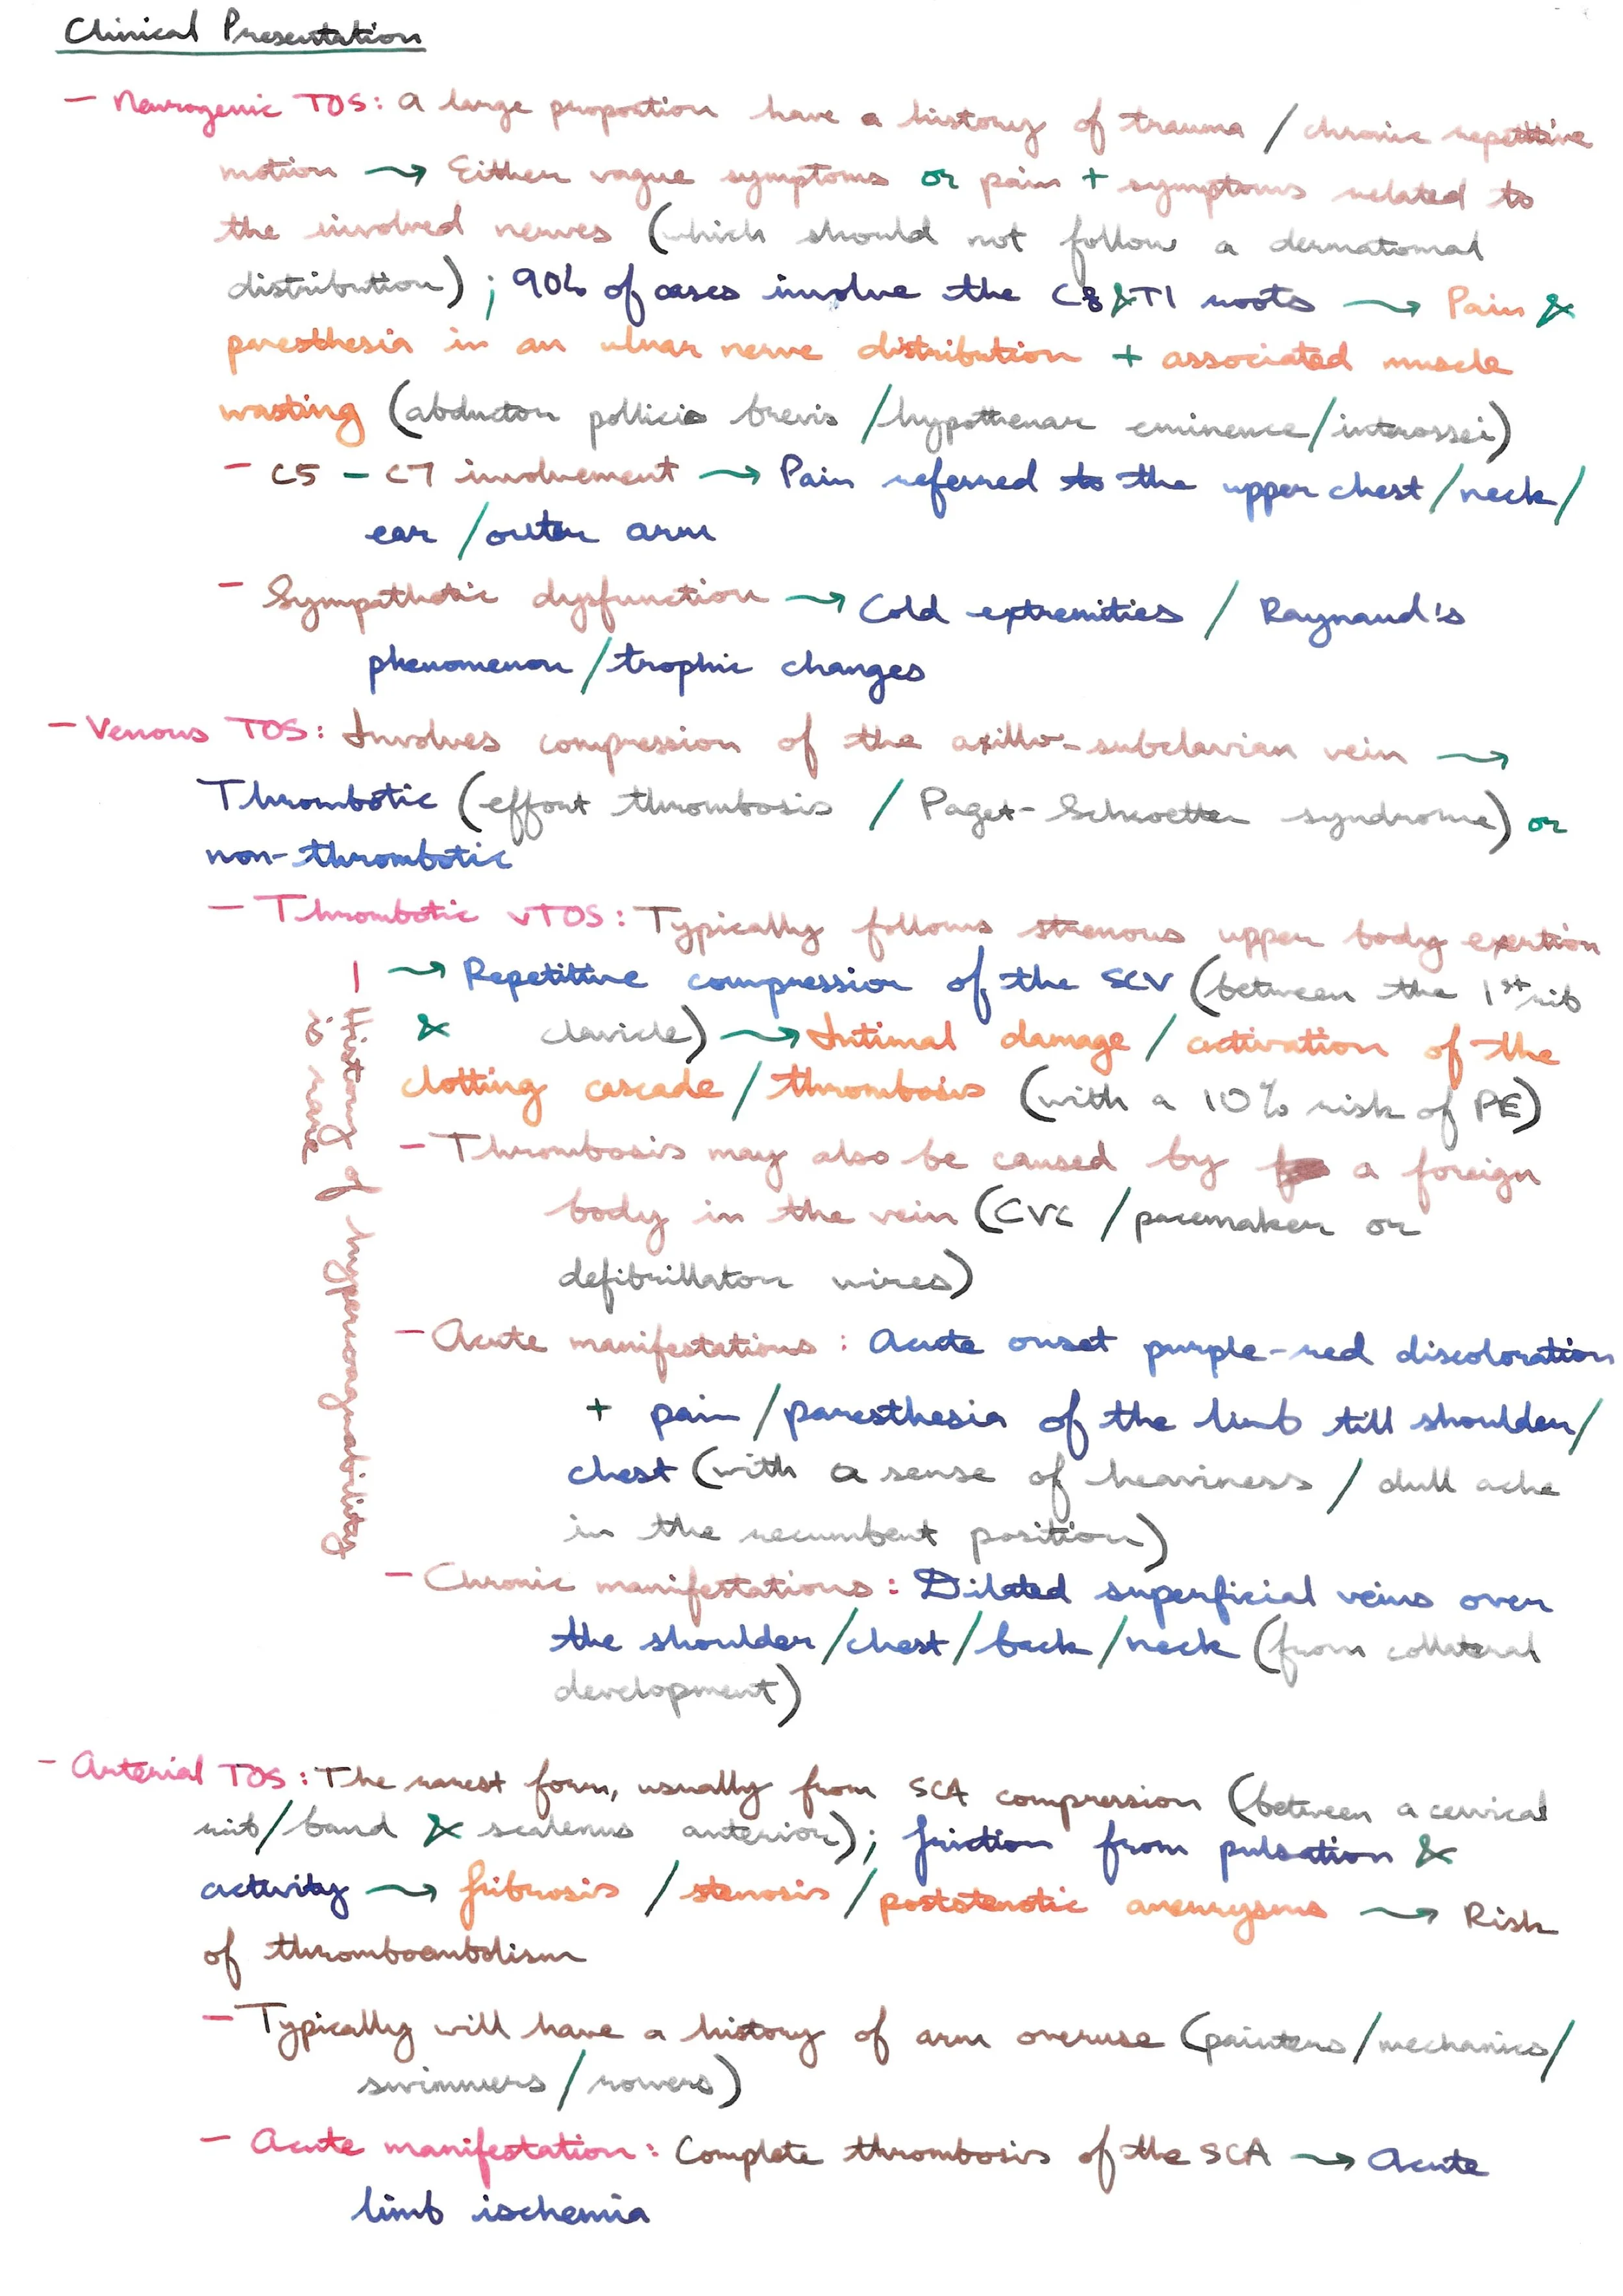 Clinical Presentation
- Neurogenic TOS: A large proportion have a history of trauma / chronic repetitive
motion → Either vague symptoms or pain + symptoms related to
the involved nerves (which should not follow a dermatomal
distribution) ; 90% of cases involve the C8 & T1 roots → Pain &
paresthesia in an ulnar nerve distribution + associated muscle
wasting (abductor pollicis brevis / hypothenar eminence / interossei)
- C5 - C7 involvement → Pain referred to the upper chest / neck /
ear / outer arm
- Sympathetic dysfunction → Cold extremities / Raynaud's
phenomenon / trophic changes
- Venous TOS: Involves compression of the axillo-subclavian vein →
Thrombotic (effort thrombosis / Paget-Schroetter syndrome) or
non-thrombotic
- Thrombotic vTOS: Typically follows strenous upper body exertion
→ Repetitive compression of the SCV (between the 1st rib
& clavicle) → Intimal damage / activation of the
clotting cascade / thrombosis (with a 10% risk of PE)
- Thrombosis may also be caused by a foreign
body in the vein (CVC / pacemaker or
defibrillator wires)
- Acute manifestations : Acute onset purple-red discoloration
+ pain / paresthesia of the limb till shoulder /
chest (with a sense of heaviness / dull ache
in the recumbent position)
- Chronic manifestations : Dilated superficial veins over
the shoulder / chest / back / neck (from collateral
development)
- History of hypercoagulability
is rare
- Arterial TOS : The rarest form, usually from SCA compression (between a cervical
rib / band & scalenus anterior) ; friction from pulsation &
activity → fibrosis / stenosis / poststenotic aneurysms → Risk
of thromboembolism
- Typically will have a history of arm overuse (painters / mechanics /
swimmers / rowers)
- Acute manifestation : Complete thrombosis of the SCA → Acute
limb ischemia